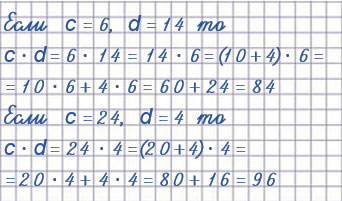 Если c = 6, d = 14 то
c · d = 6 · 14 = 14 · 6 = (10 + 4) · 6 =
= 10 · 6 + 4 · 6 = 60 + 24 = 84
Если c = 24, d = 4 то
c · d = 24 · 4 = (20 + 4) · 4 =
= 20 · 4 + 4 · 4 = 80 + 16 = 96